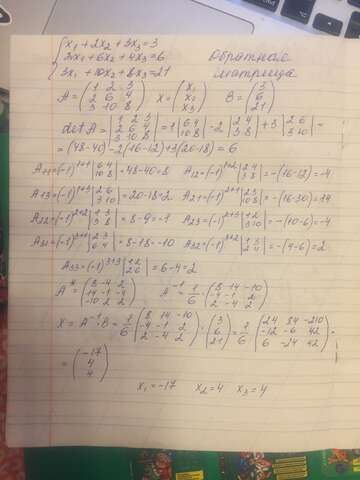 {x₁ + 2x₂ + 3x₃ = 3
2x₁ + 6x₂ + 4x₃ = 6
3x₁ + 10x₂ + 8x₃ = 21
Обратная матрица
A = (1 2 3; 2 6 4; 3 10 8) X = (x₁; x₂; x₃) B = (3; 6; 21)
det A = |1 2 3; 2 6 4; 3 10 8| = 1 |6 4; 10 8| - 2 |2 4; 3 8| + 3 |2 6; 3 10| =
= (48-40) - 2(16-12) + 3(20-18) = 6
A₁₁ = (-1)¹⁺¹ |6 4; 10 8| = 48-40 = 8 A₁₂ = (-1)¹⁺² |2 4; 3 8| = -(16-12) = -4
A₁₃ = (-1)¹⁺³ |2 6; 3 10| = 20-18 = 2 A₂₁ = (-1)²⁺¹ |2 3; 10 8| = -(16-30) = 14
A₂₂ = (-1)²⁺² |1 3; 3 8| = 8-9 = -1 A₂₃ = (-1)²⁺³ |1 2; 3 10| = -(10-6) = -4
A₃₁ = (-1)³⁺¹ |2 3; 6 4| = 8-18 = -10 A₃₂ = (-1)³⁺² |1 3; 2 4| = -(4-6) = 2
A₃₃ = (-1)³⁺³ |1 2; 2 6| = 6-4 = 2
A* = (8 -4 2; 14 -1 -4; -10 2 2) A⁻¹ = 1/6 (8 14 -10; -4 -1 2; 2 -4 2)
X = A⁻¹ · B = 1/6 (8 14 -10; -4 -1 2; 2 -4 2) · (3; 6; 21) = 1/6 (24 84 -210; -12 -6 42; 6 -24 42) =
= (-17; 4; 4)
x₁ = -17 x₂ = 4 x₃ = 4